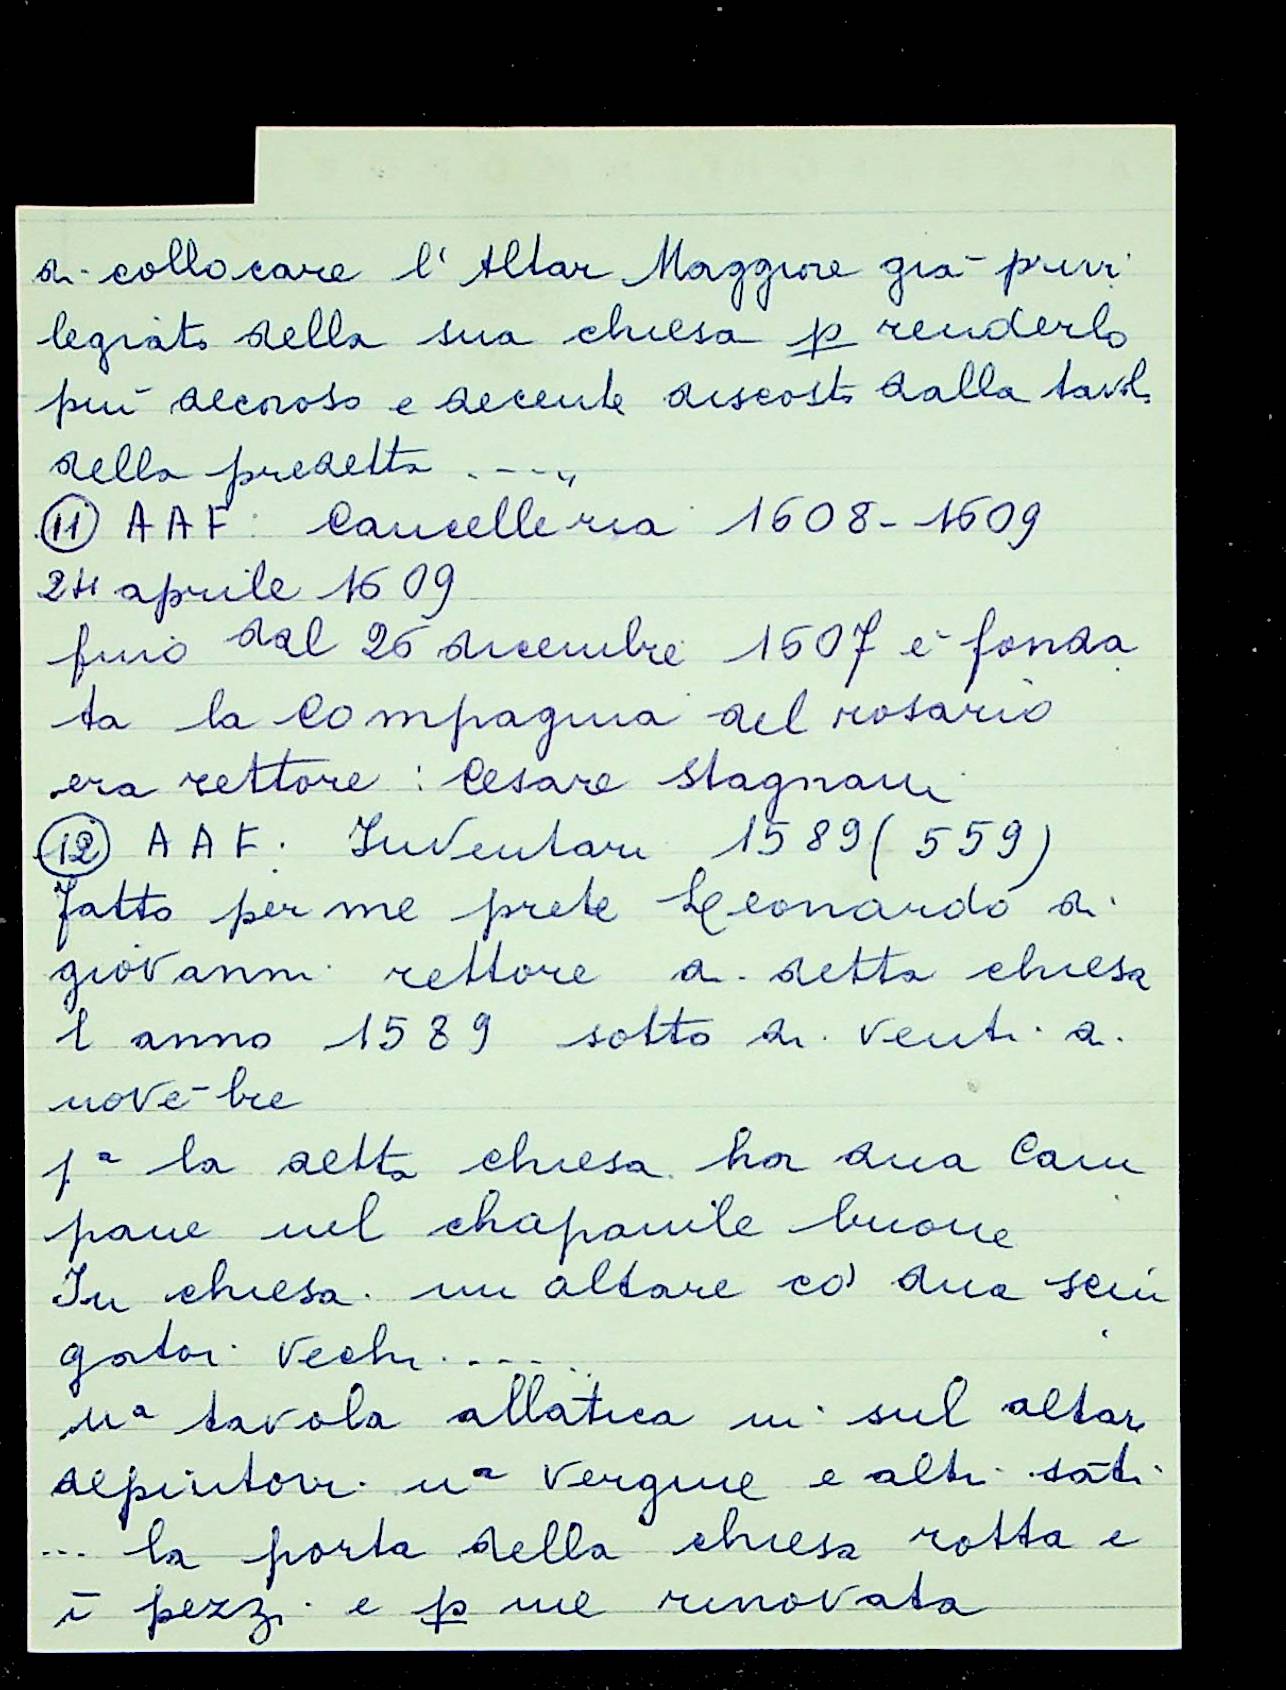 di collocare l'Altar Maggiore già privi
legiato della sua chiesa p renderlo
più decoroso e decente discosto dalla tavola
della predetta ....,,
(11) AAF: Cancelleria 1608-1609
24 aprile 1609
fino dal 26 dicembre 1607 è fonda
ta la Compagnia del rosario
era rettore: Cesare Stagnani
(12) AAF. Inventari 1589 (559)
fatto per me prete Leonardo di
giovanni rettore di detta chiesa
l anno 1589 sotto di venti di
nove-bre
pª la detta chiesa ha dua Cam
pane nel chapanile buone
In chiesa un altare cō dua sciu
gatoi vechi ....
nª tavola allātica in sul altare
depintovi nª vergine e altri sāti
... la porta della chiesa rotta e
ī pezzi e p me rinovata